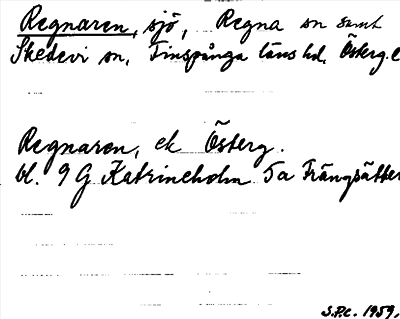 Regnaren, sjö, Regna sn samt
Skedevi sn, Finspånga läns hd, Österg. l
Regnaren, ek Österg.
bl. 9 G Katrineholm 5a Trängsätter
S.P.C. 1959.